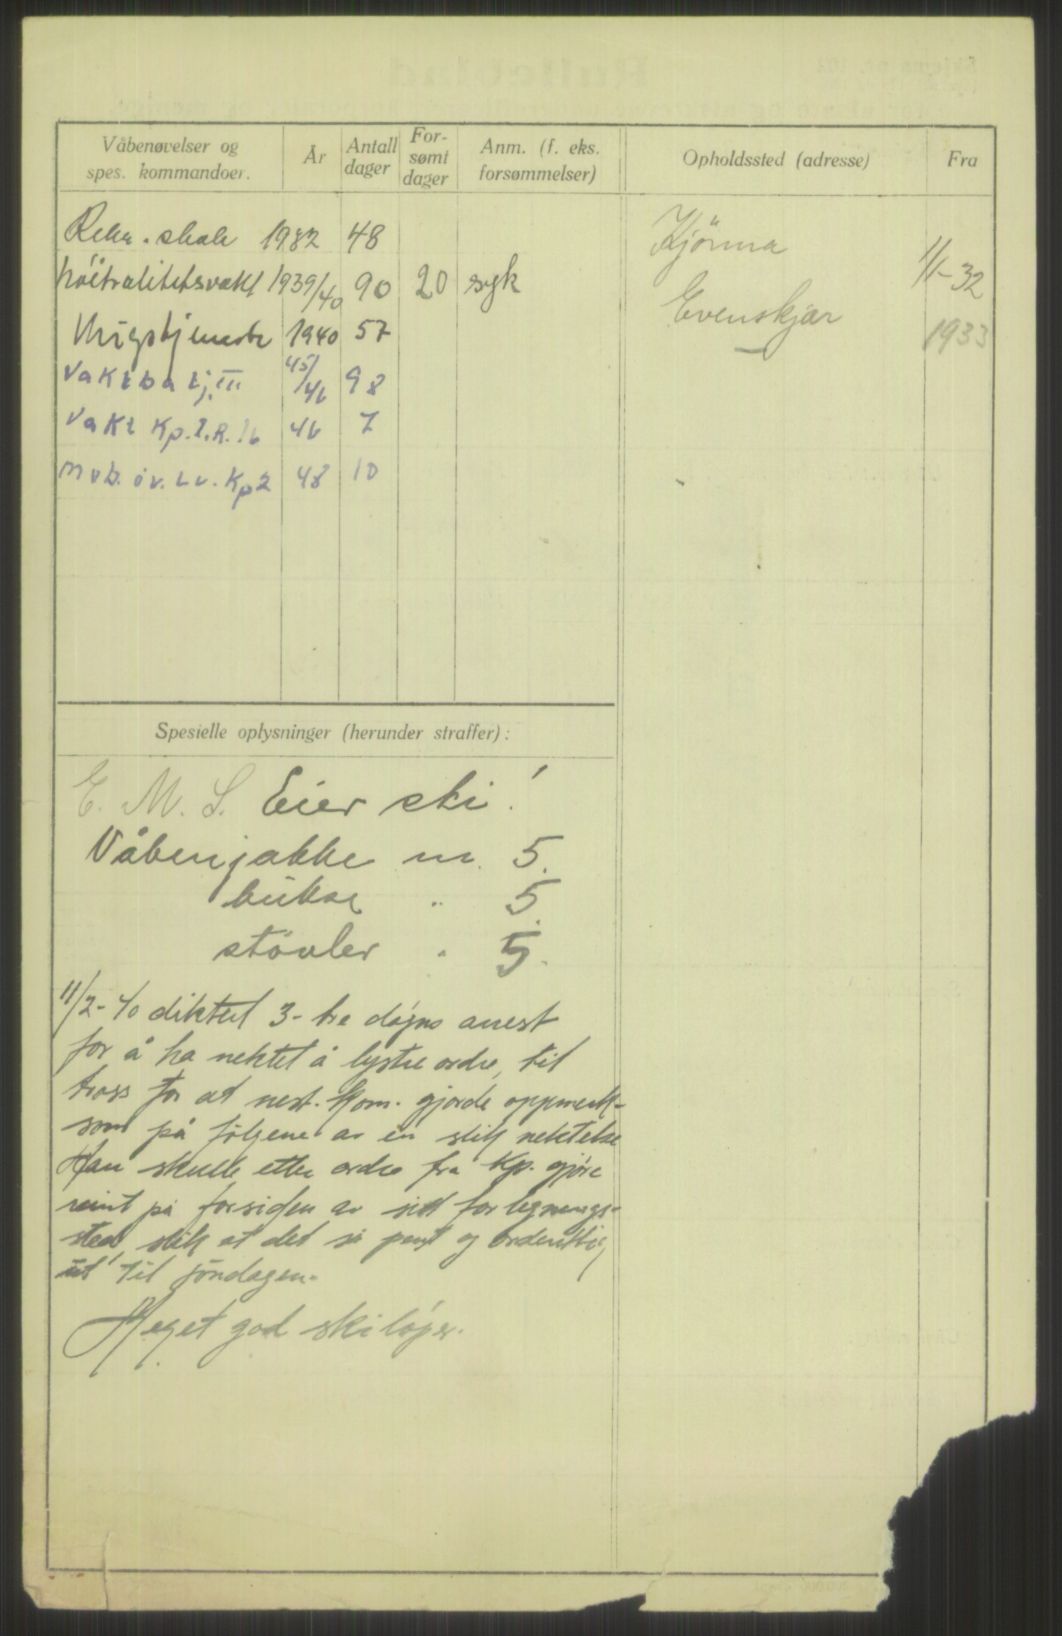 Våbenøvelser og spes. kommandoer. | År | Antall dager | For- sømt dager | Anm. (f. eks. forsømmelser) | Opholdssted (adresse) | Fra
Rekr. skole 1932 48
Nöitralitetsvakt 1939/40 90 20 syk
Krigstjeneste 1940 57
Vaktbatj. III 45/46 98
Vakt Kp. I.R. 16 46 7
Mob. öv. Lv. Kp 2 48 10
Kjönna 1/1-32
Evenskjær 1933
Spesielle oplysninger (herunder straffer):
E. M. S. Eier ski!
Våbenjakke nr. 5.
bukse " 5.
stövler " 5.
11/2-40 diktert 3- tre døgns arrest
for å ha nektet å lystre ordre, til
tross for at nest. kom. gjorde oppmerk-
som på fölgene av en slik nektelse
Han skulle etter ordre fra Kp. gjöre
reint på forsiden av sitt forlegnings-
sted, slik at det så pent og ordentlig
ut til söndagen.
Meget god skilöper.